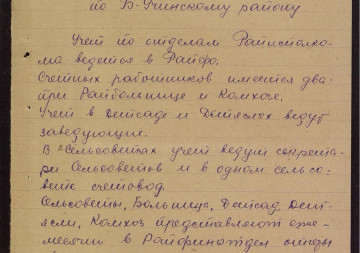 по В-Учинскому району
Учет по отделам Райисполко-
ма ведется в Райфо.
Счетных работников имеется два
при Райбольнице и Комхозе.
Учет в Детсаде и Детяслях ведут
заведующие.
В Сельсоветах учет ведут секрета-
ри Сельсоветов и в одном сельсо-
вете счетовод.
Сельсоветы, Больница, Детсад, Дет-
ясли, Комхоз представляют еже-
месячно в Райфинотдел отчеты